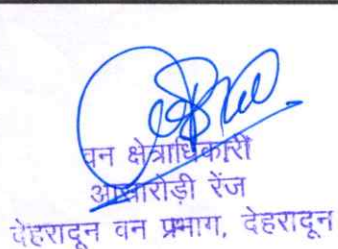 वन क्षेत्राधिकारी
आशारोड़ी रेंज
देहरादून वन प्रभाग, देहरादून